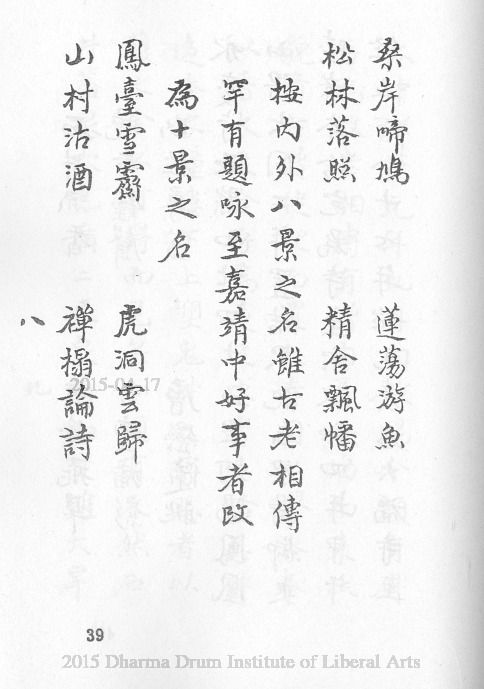 桑岸啼鳩 蓮蕩游魚
松林落照 精舍飄幡
按內外八景之名雖古老相傳
罕有題咏至嘉靖中好事者改
為十景之名
鳳臺雪霽 虎洞雲歸
山村沽酒 禪榻論詩
八
2015-04-17
39
2015 Dharma Drum Institute of Liberal Arts